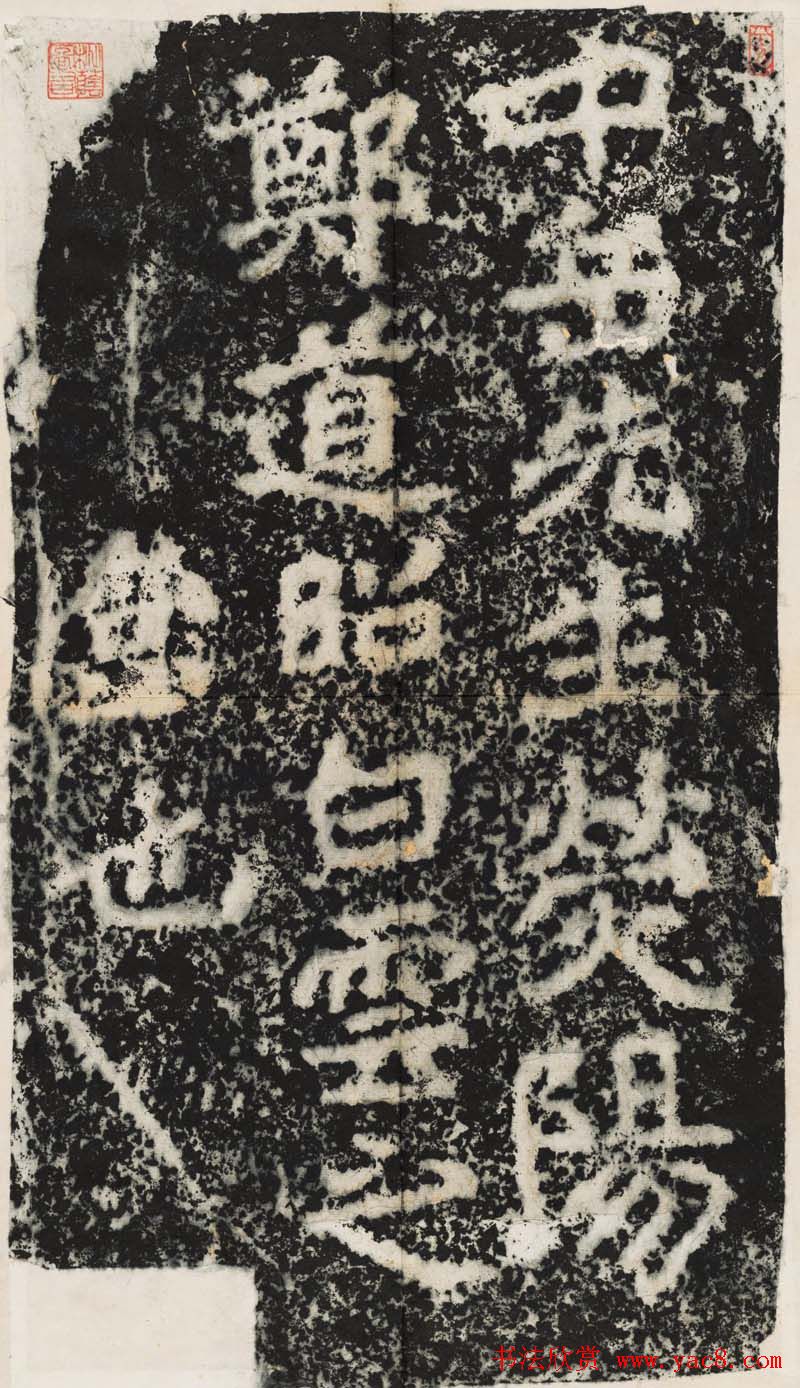 中岳先生熒陽
鄭道昭白雲之
堂也
书法欣赏 www.yac8.com